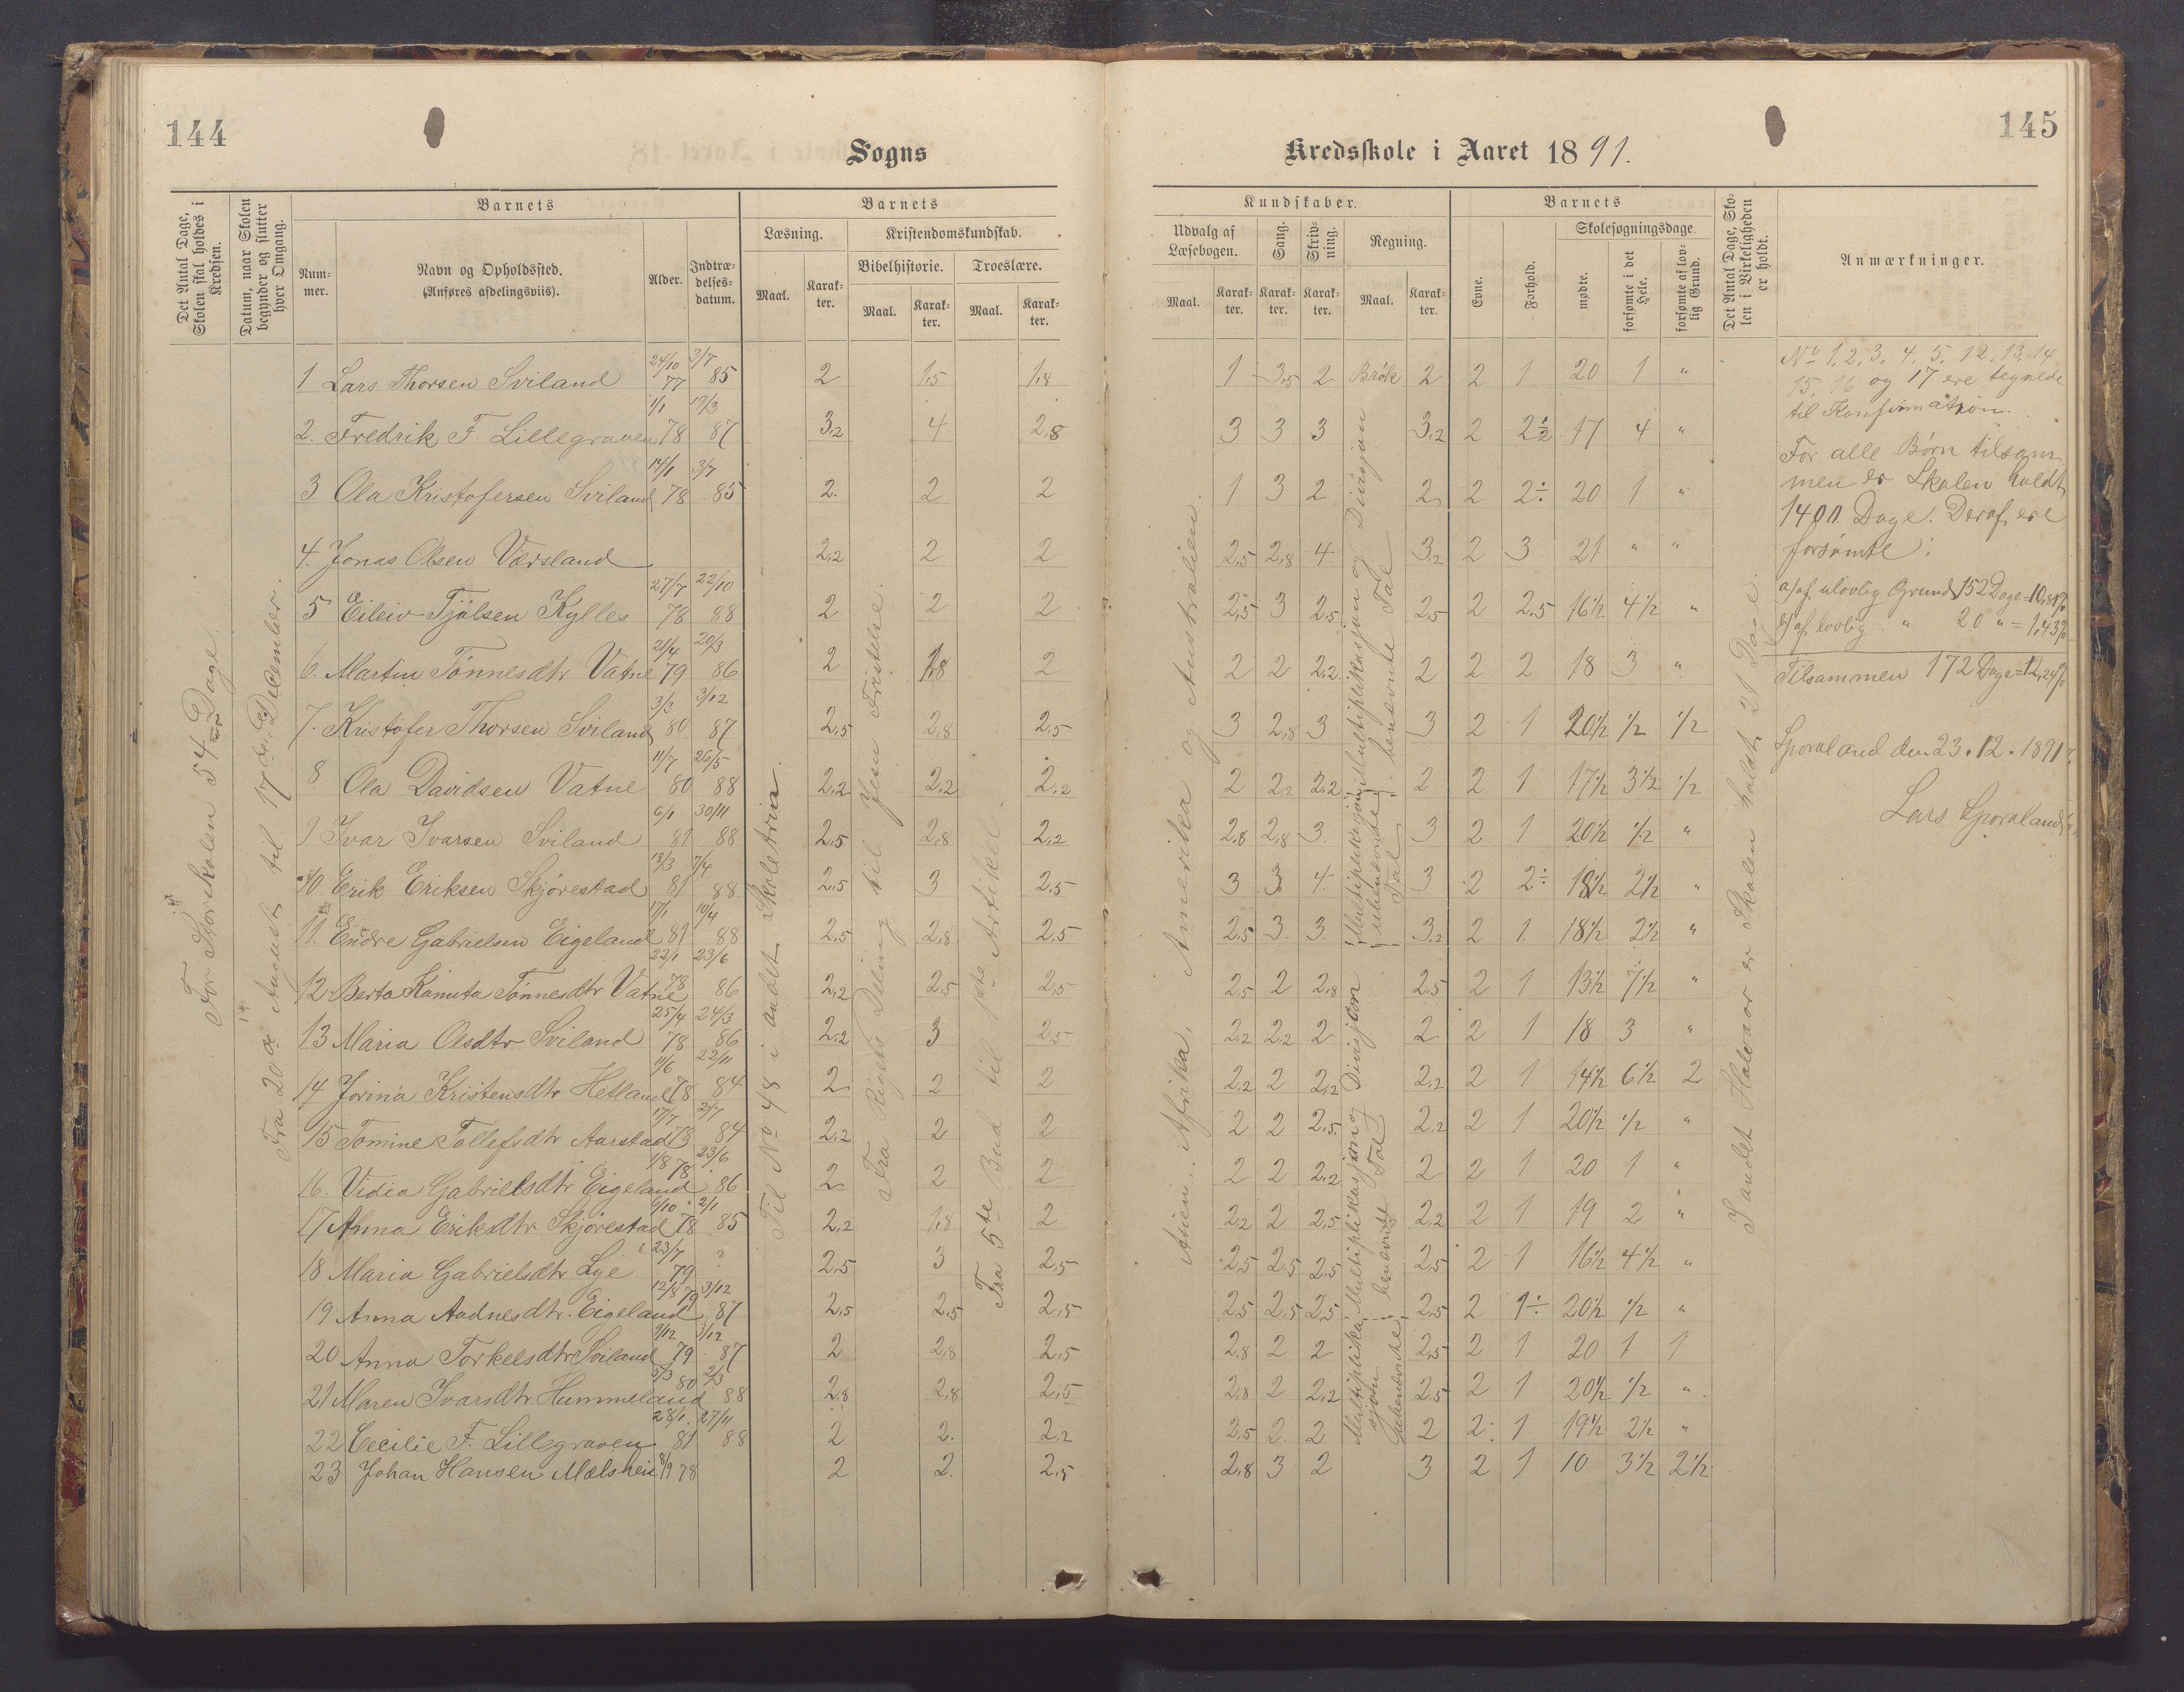 144
Sogns
Det Antal Dage, Skolen skal holdes i Kredsen.
Datum, naar Skolen begynder og slutter hver Omgang.
Barnets
Num-mer.
Navn og Opholdssted.
(Anføres afdelingsviis).
Alder.
Indtræ-delses-datum.
Barnets
Læsning.
Kristendomskundskab.
Maal.
Karak-ter.
Bibelhistorie.
Troeslære.
Maal.
Karak-ter.
Maal.
Karak-ter.
For Storskolen 54 Dage.
Fra 20de August til 17de December.
Til No 48 i andet Skoletrin.
Fra Rigets Deling til Jesu Fristelse.
Fra 5te Bud til Artikel.
1 Lars Thorsen Sviland 24/10 77 3/7 85 2 1,5 1,8
2. Fredrik F. Lillegraven 1/1 78 19/3 87 3,2 4 2,8
3 Ola Kristofersen Sviland 14/1 78 3/7 85 2. 2 2
4. Jonas Olsen Værsland 2,2 2 2
5 Eileiv Tjölsen Kylles 27/7 78 22/10 88 2 2 2
6. Martin Tönnesdtr Vatne 21/4 79 20/3 86 2 1,8 2
7. Kristofer Thorsen Sviland 3/3 80 3/12 87 2,5 2,8 2,5
8 Ola Davidsen Vatne 11/7 80 26/5 88 2,2 2,2 2,2
9 Ivar Ivarsen Sviland 6/1 81 30/11 88 2,5 2,8 2,2
10 Erik Eriksen Skjörestad 18/3 81 7/4 88 2,5 3 2,5
11. Endre Gabrielsen Eigeland 17/1 81 10/4 88 2,5 2,8 2,5
12 Berta Kanuta Tönnesdtr Vatne 22/1 78 23/6 86 2,2 2,5 2,5
13 Maria Olsdtr Sviland 25/4 78 24/3 86 2,2 3 2,5
14 Jorina Kristensdtr Hetland 11/6 78 22/11 84 2 2 2
15 Tomine Tollefsdtr Aarstad 17/7 78 2/7 84 2,2 2 2
16. Vidia Gabrielsdtr Eigeland 1/8 78 23/6 86 2 2 2
17 Anna Eriksdtr Skjörestad 6/10 78 2/1 85 2,2 1,8 2
18 Maria Gabrielsdtr Lye 23/7 79 ? 2,5 3 2,5
19 Anna Aadnesdtr. Eigeland 12/8 79 3/12 87 2,5 2,5 2,5
20 Anna Torkelsdtr Sviland 9/12 79 3/12 87 2 2,8 2,5
21 Maren Ivarsdtr Hummeland 3/3 80 2/3 88 2,8 2,8 2,5
22 Cecilie F. Lillegraven 28/1 81 27/11 88 2 2. 2,2
23 Johan Hansen Mælsheie 8/9 78 2 2. 2,5
145
Kredsskole i Aaret 1891.
Kundskaber.
Udvalg af Læsebogen.
Sang.
Skriv-ning.
Regning.
Maal.
Karak-ter.
Karak-ter.
Karak-ter.
Maal.
Karak-ter.
Barnets
Evne.
Forhold.
Skolesøgningsdage.
mødte.
forsømte i det Hele.
forsømte af lov-lig Grund.
Det Antal Dage, Sko-len i Virkeligheden er holdt.
Anmærkninger.
Asien, Afrika, Amerika og Australien.
Multiplikasjon og Divisjon benævnte Tal
Multiplikasjon ubenævnte Tal
Multiplikasjon og Divisjon benævnte Tal
Multiplikasjon Ubenævnte
I andet Halvaar er Skolen holdt 21 Dage.
1 3,5 2 Brök 2 2 1 20 1 "
3 3 3 3,2 2 2½ 17 4 "
1 3 2 2 2 2÷ 20 1 "
2,5 2,8 4 3,2 2 3 21 " "
2,5 3 2,5 2,5 2 2,5 16½ 4½ "
2 2 2,2 2 2 2 18 3 "
3 2,8 3 3 2 1 20½ ½ ½
2 2,2 2,2 2 2 1 17½ 3½ ½
2,8 2,8 3 3 2 1 20½ ½ "
3 3 4 3 2 2÷ 18½ 2½ "
2,5 3 3 3,2 2 1 18½ 2½ "
2,5 2 2,8 2,5 2 1 13½ 7½ "
2,2 2,2 2 2 2 1 18 3 "
2,2 2 2,2 2,2 2 1 14½ 6½ 2
2 2 2,5 2,2 2 1 20½ ½ "
2 2 2,2 2 2 1 20 1 "
2,2 2 2,5 2,2 2 1 19 2 "
2,5 2,5 2,5 2,5 2 1 16½ 4½ "
2,5 2,5 2,5 2,5 2 1÷ 20½ ½ "
2,8 2 2 2,5 2 1 20 1 1
2,8 2 2,2 2,5 2 1 20½ ½ "
2,5 2 2 2 2 1 19½ 2½ "
2,8 3 2 3 2 1 10 3½ 2½
No 1, 2, 3, 4, 5, 12, 13, 14
15, 16 og 17 ere tegnede
til Konfirmation.
For alle Börn tilsam
men er Skolen holdt
1401 Dage. Deraf ere
forsömte:
a) af ulovlig Grund 152 Dage = 10,81%
b) af lovlig " 20 " = 1,43%
Tilsammen 172 Dage = 12,24%
Sporaland den 23.12.1891
Lars Sporaland